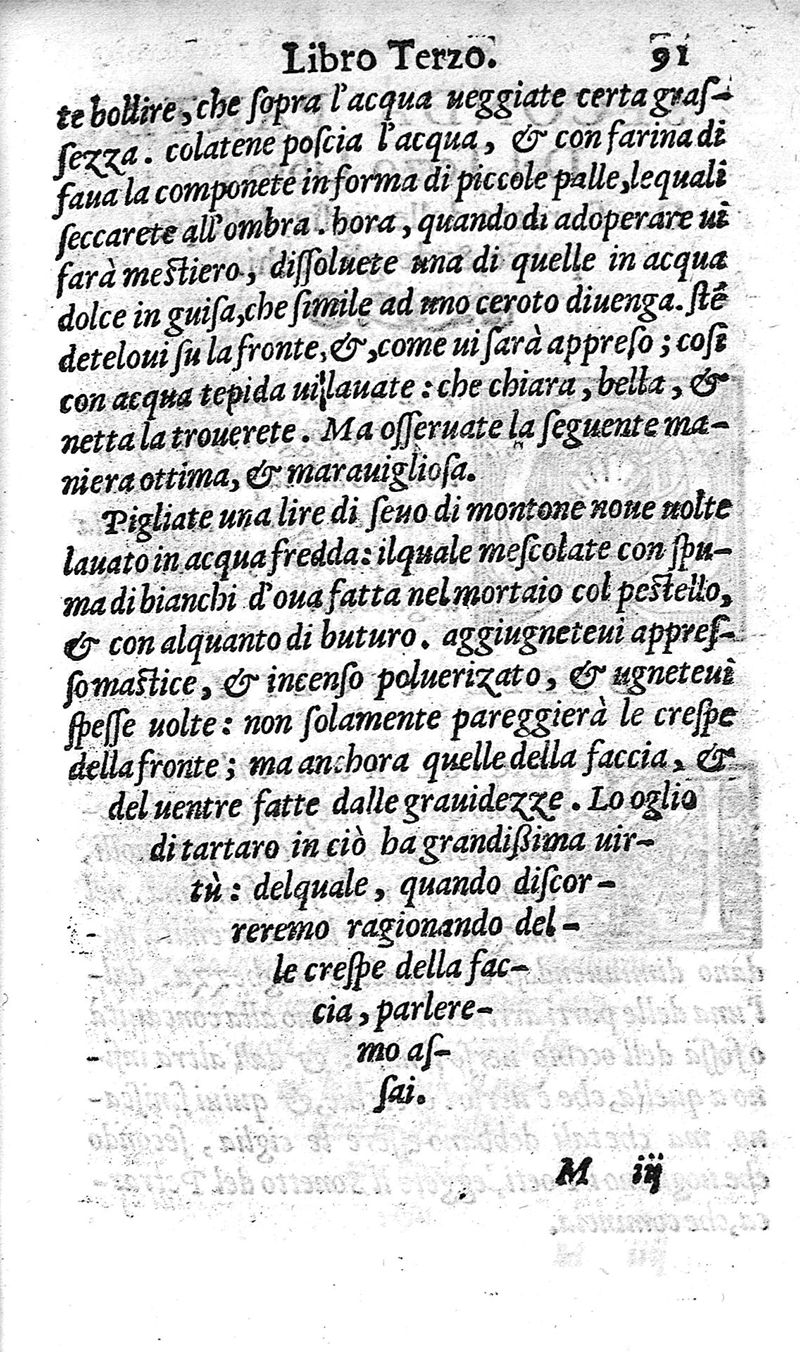 Libro Terzo. 91
te bollire, che ſopra l'acqua ueggiate certa graſ-
ſezza. colatene poſcia l'acqua, & con farina di
faua la componete in forma di piccole palle, lequali
ſeccarete all'ombra. hora, quando di adoperare ui
ſarà meſtiero, diſſoluete una di quelle in acqua
dolce in guiſa, che ſimile ad uno ceroto diuenga. ſtē
deteloui ſu la fronte, &, come ui ſarà appreſo; coſi
con acqua tepida ui lauate: che chiara, bella, &
netta la trouerete. Ma oſſeruate la ſeguente ma-
niera ottima, & marauiglioſa.
Pigliate una lire di ſeuo di montone noue uolte
lauato in acqua fredda: ilquale meſcolate con ſpu-
ma di bianchi d'oua fatta nel mortaio col peſtello,
& con alquanto di buturo. aggiugneteui appreſ-
ſo maſtice, & incenſo poluerizato, & ugneteui
ſpeſſe uolte: non ſolamente pareggierà le creſpe
della fronte; ma anchora quelle della faccia, &
del uentre fatte dalle grauidezze. Lo oglio
di tartaro in ciò ha grandißima uir-
tù: delquale, quando diſcor-
reremo ragionando del-
le creſpe della fac-
cia, parlere-
mo aſ-
ſai.
M iij